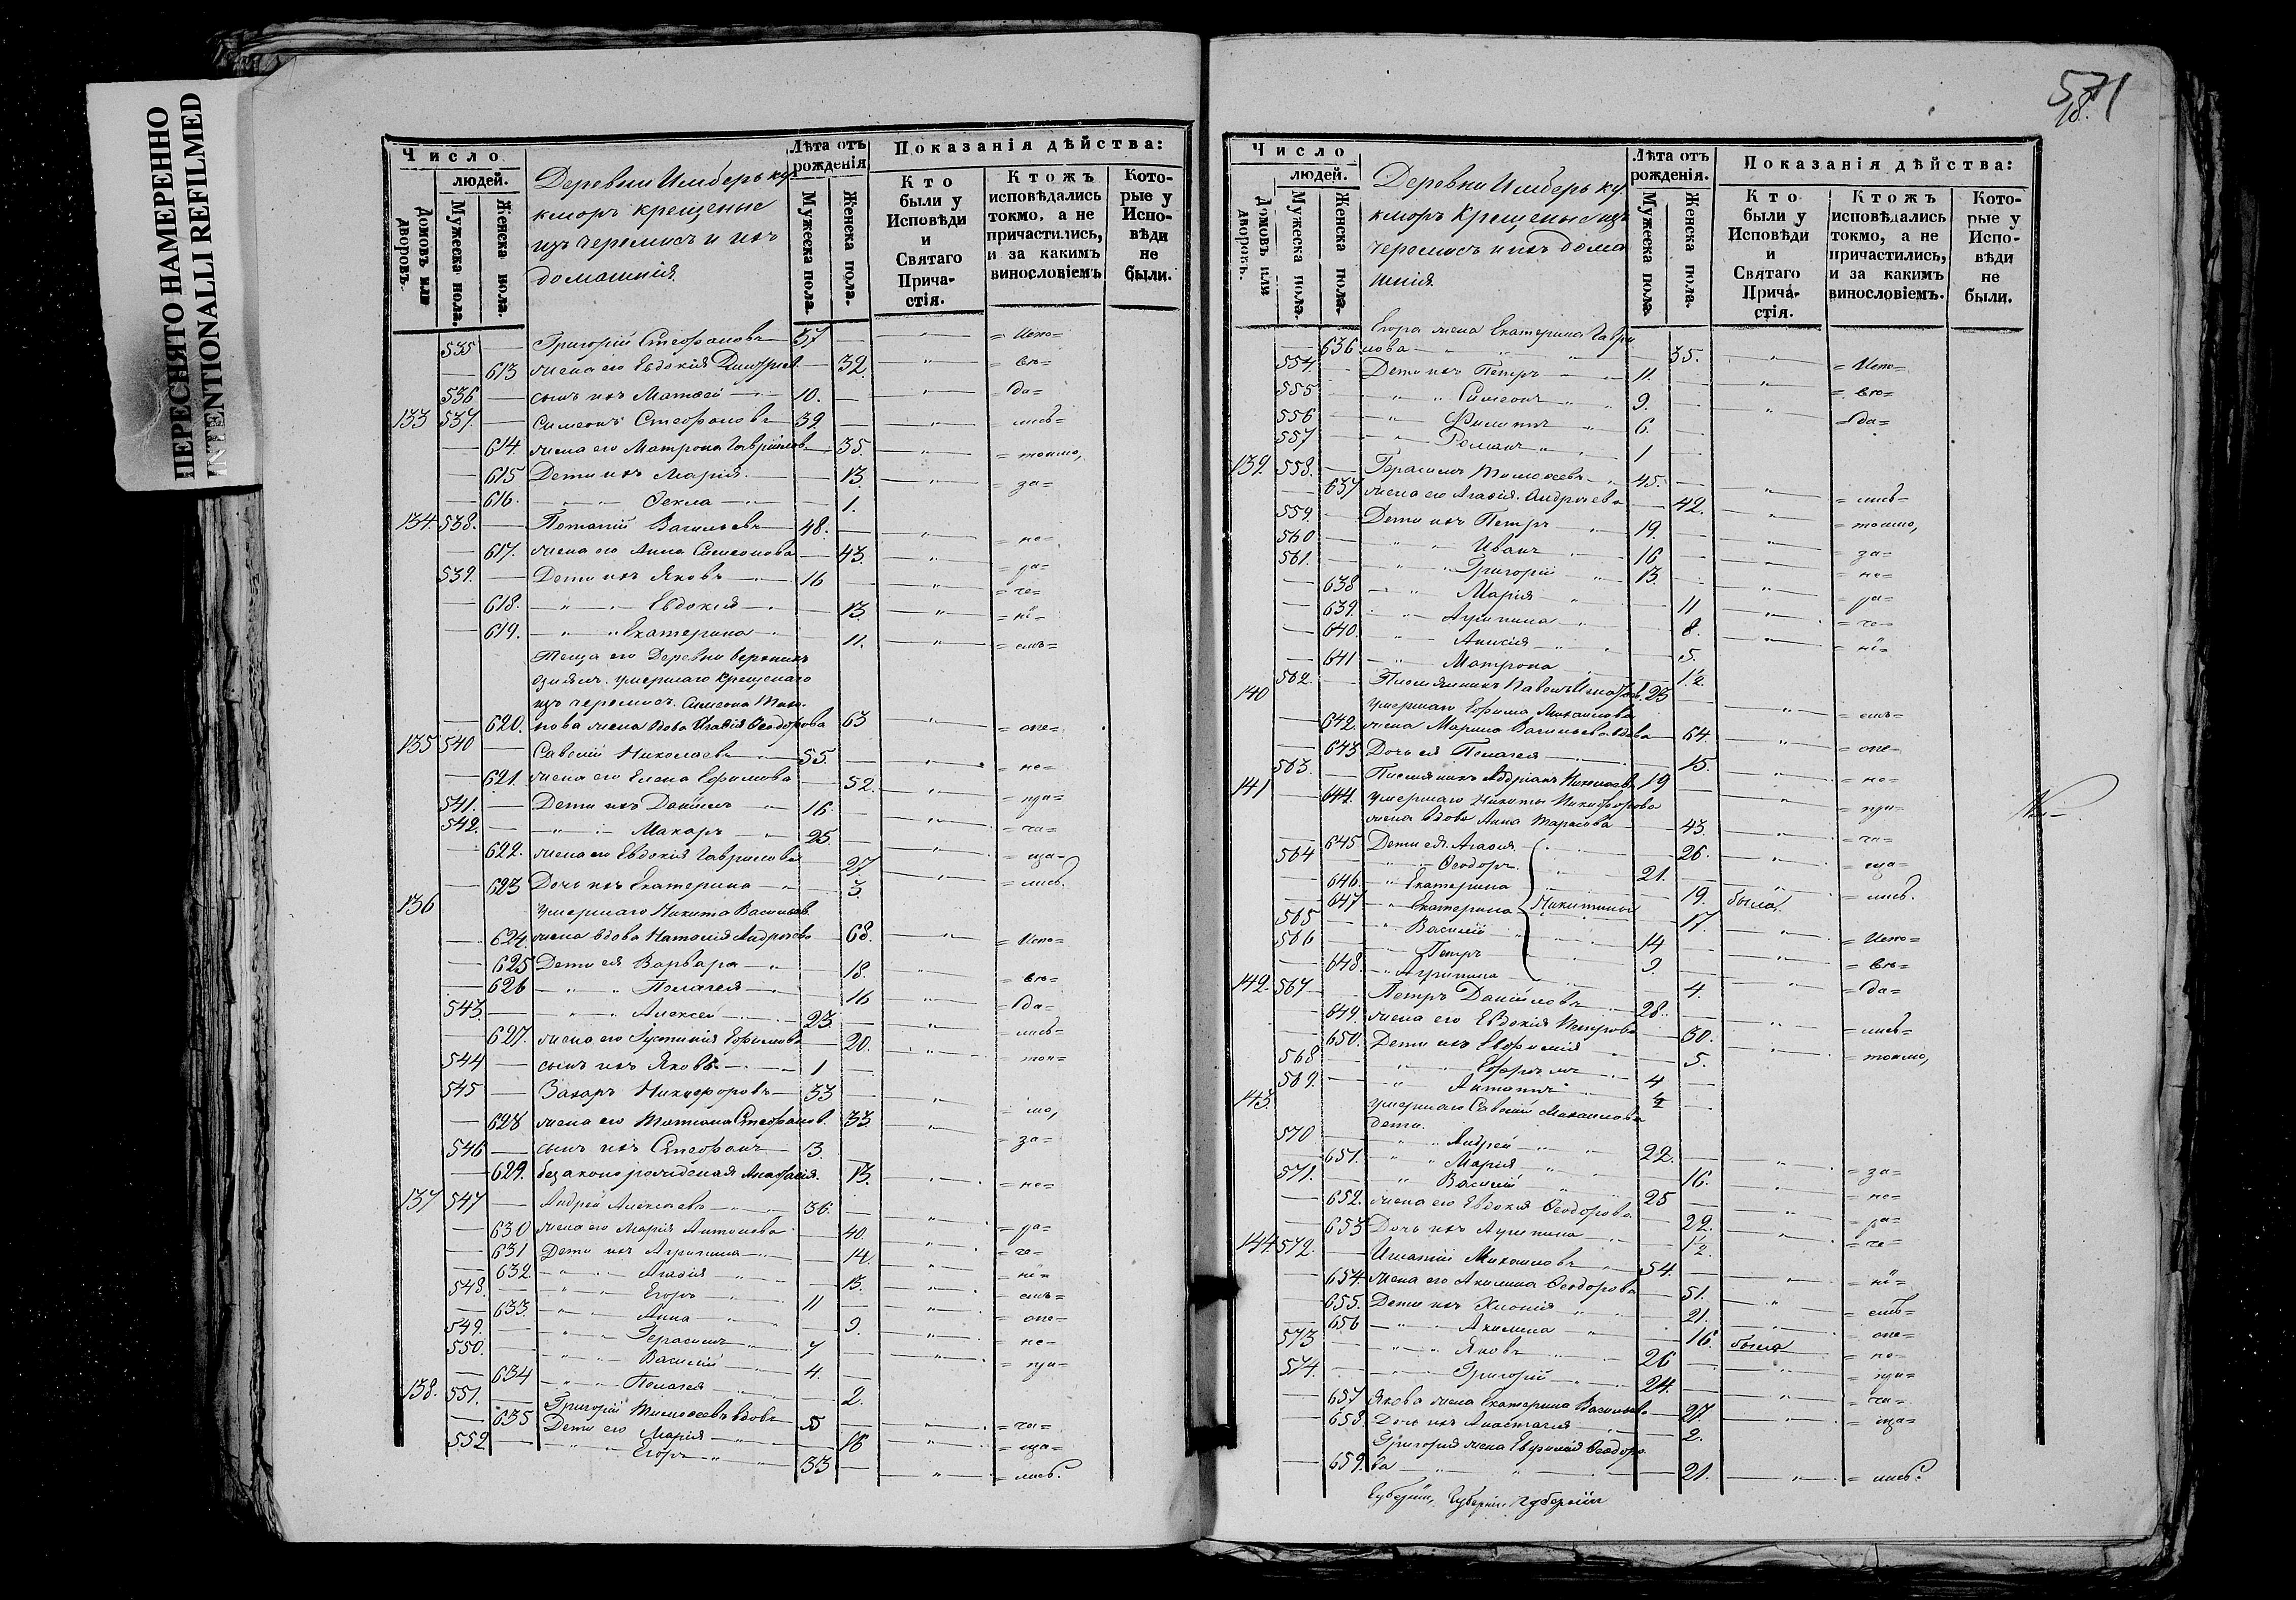 ПЕРЕСНЯТО НАМЕРЕННО
INTENTIONALLI REFILMED
Число
людей.
Домовъ или дворовъ.
Мужеска пола.
Женска пола.
Деревни Имберь ку
кморъ крещеные
изъ черемисъ и ихъ
домашнія.
Лѣта отъ рожденія
Мужеска пола.
Женска пола.
Показанія дѣйства:
Кто были у Исповѣди и Святаго Причастія.
Ктожъ исповѣдались токмо, а не причастились, и за какимъ винословіемъ.
Которые у Исповѣди не были.
535 Григорій Стефановъ 37 = Испо=
613 жена его Евдокія Дмитріев. 32. = вѣ=
536 сынъ ихъ Матѳей 10. = да=
133 537. Симеонъ Стефановъ 39. лись=
614. жена его Матрона Гавріилов. 35. = токмо,
615 Дети ихъ Марія 13. = за=
616. Ѳекла 1.
134. 538. Потапій Васильевъ 48. = не=
617. жена его Анна Симеонова 43. = ра=
539. Дети ихъ Яковъ 16 = че=
618. Евдокія 13. = ні=
619. Екатерина 11. = емъ=
Теща его Деревни
умершаго крещенаго
изъ черемисъ Симеона
620. нова жена вдова Агафія Ѳеодорова 63 = опе=
135 540 Савелій Николаевъ 55. = не=
621. жена его Елена Ефимова 52. = при=
541. Дети ихъ Даніилъ 16. = ча=
542. Макаръ 25.
622. жена его Евдокія Гаврилова 27. = ща=
623 Дочь ихъ Екатерина 3. = лись.
136 умершаго Никита Васильев.
624. жена вдова Наталія Андреева 68. = Испо=
625 Дети ея Варвара 18. = вѣ=
626 Пелагея 16 = да=
543. Алексей 23. = лись=
627. жена его Іустинія Ефимова 20. = ток=
544 сынъ ихъ Яковъ 1
545 Захаръ Никифоровъ 33 = мо,
628 жена его Татіана Стефанов. 33 = за=
546 сынъ ихъ Стефанъ 3.
629. безаконорожденая Анафасія. 13. = не=
137 547 Андрей Алексеевъ 36. = ра=
630 жена его Марія Антонова 40. = че=
631 Дети ихъ Агрипина 14. = ні=
632. Агафія 13. = емъ=
548. Егоръ 11 = опе=
633. Анна 9. = не=
549. Герасимъ 7 = при=
550. Василій 4.
634 Пелагея 2.
138. 551. Григорій Тимофеевъ вдовъ 55 = ча=
635 Дети его Марія 16 = ща=
552 Егоръ 33 = лись.
571
18.
Число
людей.
Домовъ или дворовъ.
Мужеска пола.
Женска пола.
Деревни Имберь ку
кморъ крещеные изъ
черемисъ и ихъ дома
шнія.
Лѣта отъ рожденія.
Мужеска пола.
Женска пола.
Показанія дѣйства:
Кто были у Исповѣди и Святаго Причастія.
Ктожъ исповѣдались токмо, а не причастились, и за какимъ винословіемъ.
Которые у Исповѣди не были.
Егора жена Екатерина Гаври
636 лова 35. = Испо=
554. Дети ихъ Петръ 11. = вѣ=
555 Симеонъ 9. = да=
556 Филиппъ 6.
557 Романъ 1
139. 558. Герасимъ Тимофеевъ 45. = лись=
637 жена его Агафія Андреева 42. = токмо,
559. Дети ихъ Петръ 19. = за=
560 Иванъ 16 = не=
561. Григорій 13. = ра=
638 Марія 11 = че=
639. Агрипина 8. = ні=
640. Анисія 5.
641 Матрона 1½
562. Племянникъ Павелъ 23 = емъ=
140 умершаго Ефима Михаилова
642. жена Марина Васильева вдова 64. = опе=
643 Дочь ея Пелагея 15. = не=
563. Племяникъ Аддріанъ Николаевъ 19 = при=
141 644. умершаго Никиты Никифорова
жена вдова Анна Тарасова 43. = ча=
645 Дети ея Агафія 26. = ща=
564 Ѳеодоръ 21.
646. Екатерина 19. была. = лись.
647 Екатерина Никитины 17. = Испо=
565 Василій 14 = вѣ=
566 Петръ 9. = да=
648. Агрипина 4.
142. 567 Петръ Даніиловъ 28. = лись=
649. жена его Евдокія Петрова 30. = токмо,
650. Дети ихъ Евфимія 5.
568 Ефремъ 4
569. Антонъ ½
143. умершаго Савелій Михаилова
дети.
570 Андрей 22. = за=
651. Марія 16. = не=
571. Василій 25 = ра=
652. жена его Евдокія Ѳеодорова 22. = че=
653 Дочь ихъ Агрипина 1½
144. 572. Игнатій Михаиловъ 54. = ні=
654. жена его Акилина Ѳеодорова 51. = емъ=
655. Дети ихъ Хіонія 21. = опе=
656 Акилина 16. была = не=
573 Яковъ 26 = при=
574. Григорій 24. = ча=
657 Якова жена Екатерина Васильева 27. = ща=
658. Дочь ихъ Анастасія 2.
Григорія жена Евфимія Ѳеодоро
659. ва 21. = лись.
Губерніи, Губерніи Губерніи